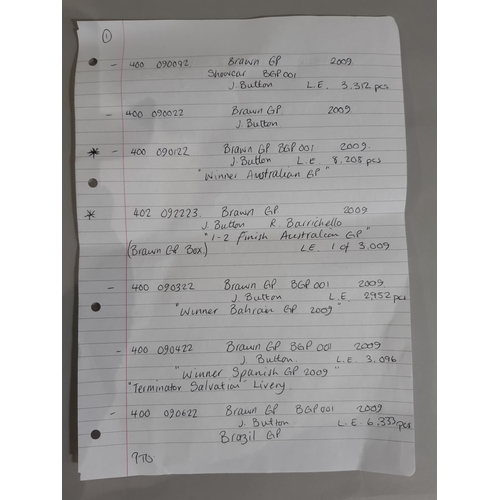 1
- 400 090072 Brawn GP 2009.
Showcar BGP 001
J. Button L.E. 3.312 pcs
- 400 090022 Brawn GP. 2009.
J. Button
* - 400 090122 Brawn GP BGP 001 2009.
J. Button L.e. 8.208 pcs
"Winner Australian GP"
* 402 092223. Brawn GP 2009
J. Button R. Barrichello
"1-2 Finish Australian GP"
(Brawn GP Box) L.E. 1 of 3.009
- 400 090322 Brawn GP BGP 001 2009
J. Button L.E. 2952 pcs
"Winner Bahrain GP 2009"
- 400 090422 Brawn GP BGP 001 2009
J. Button. L.E. 3.096
"Winner Spanish GP 2009"
"Terminator Salvation" Livery.
- 400 090622 Brawn GP BGP 001 2009
J. Button L.E. 6.333 pcs
Brazil GP
PTO